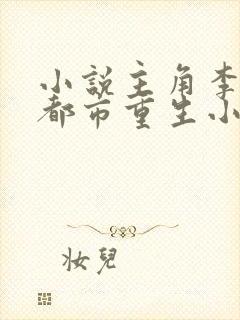 小說主角李
都市重生小
妝兒